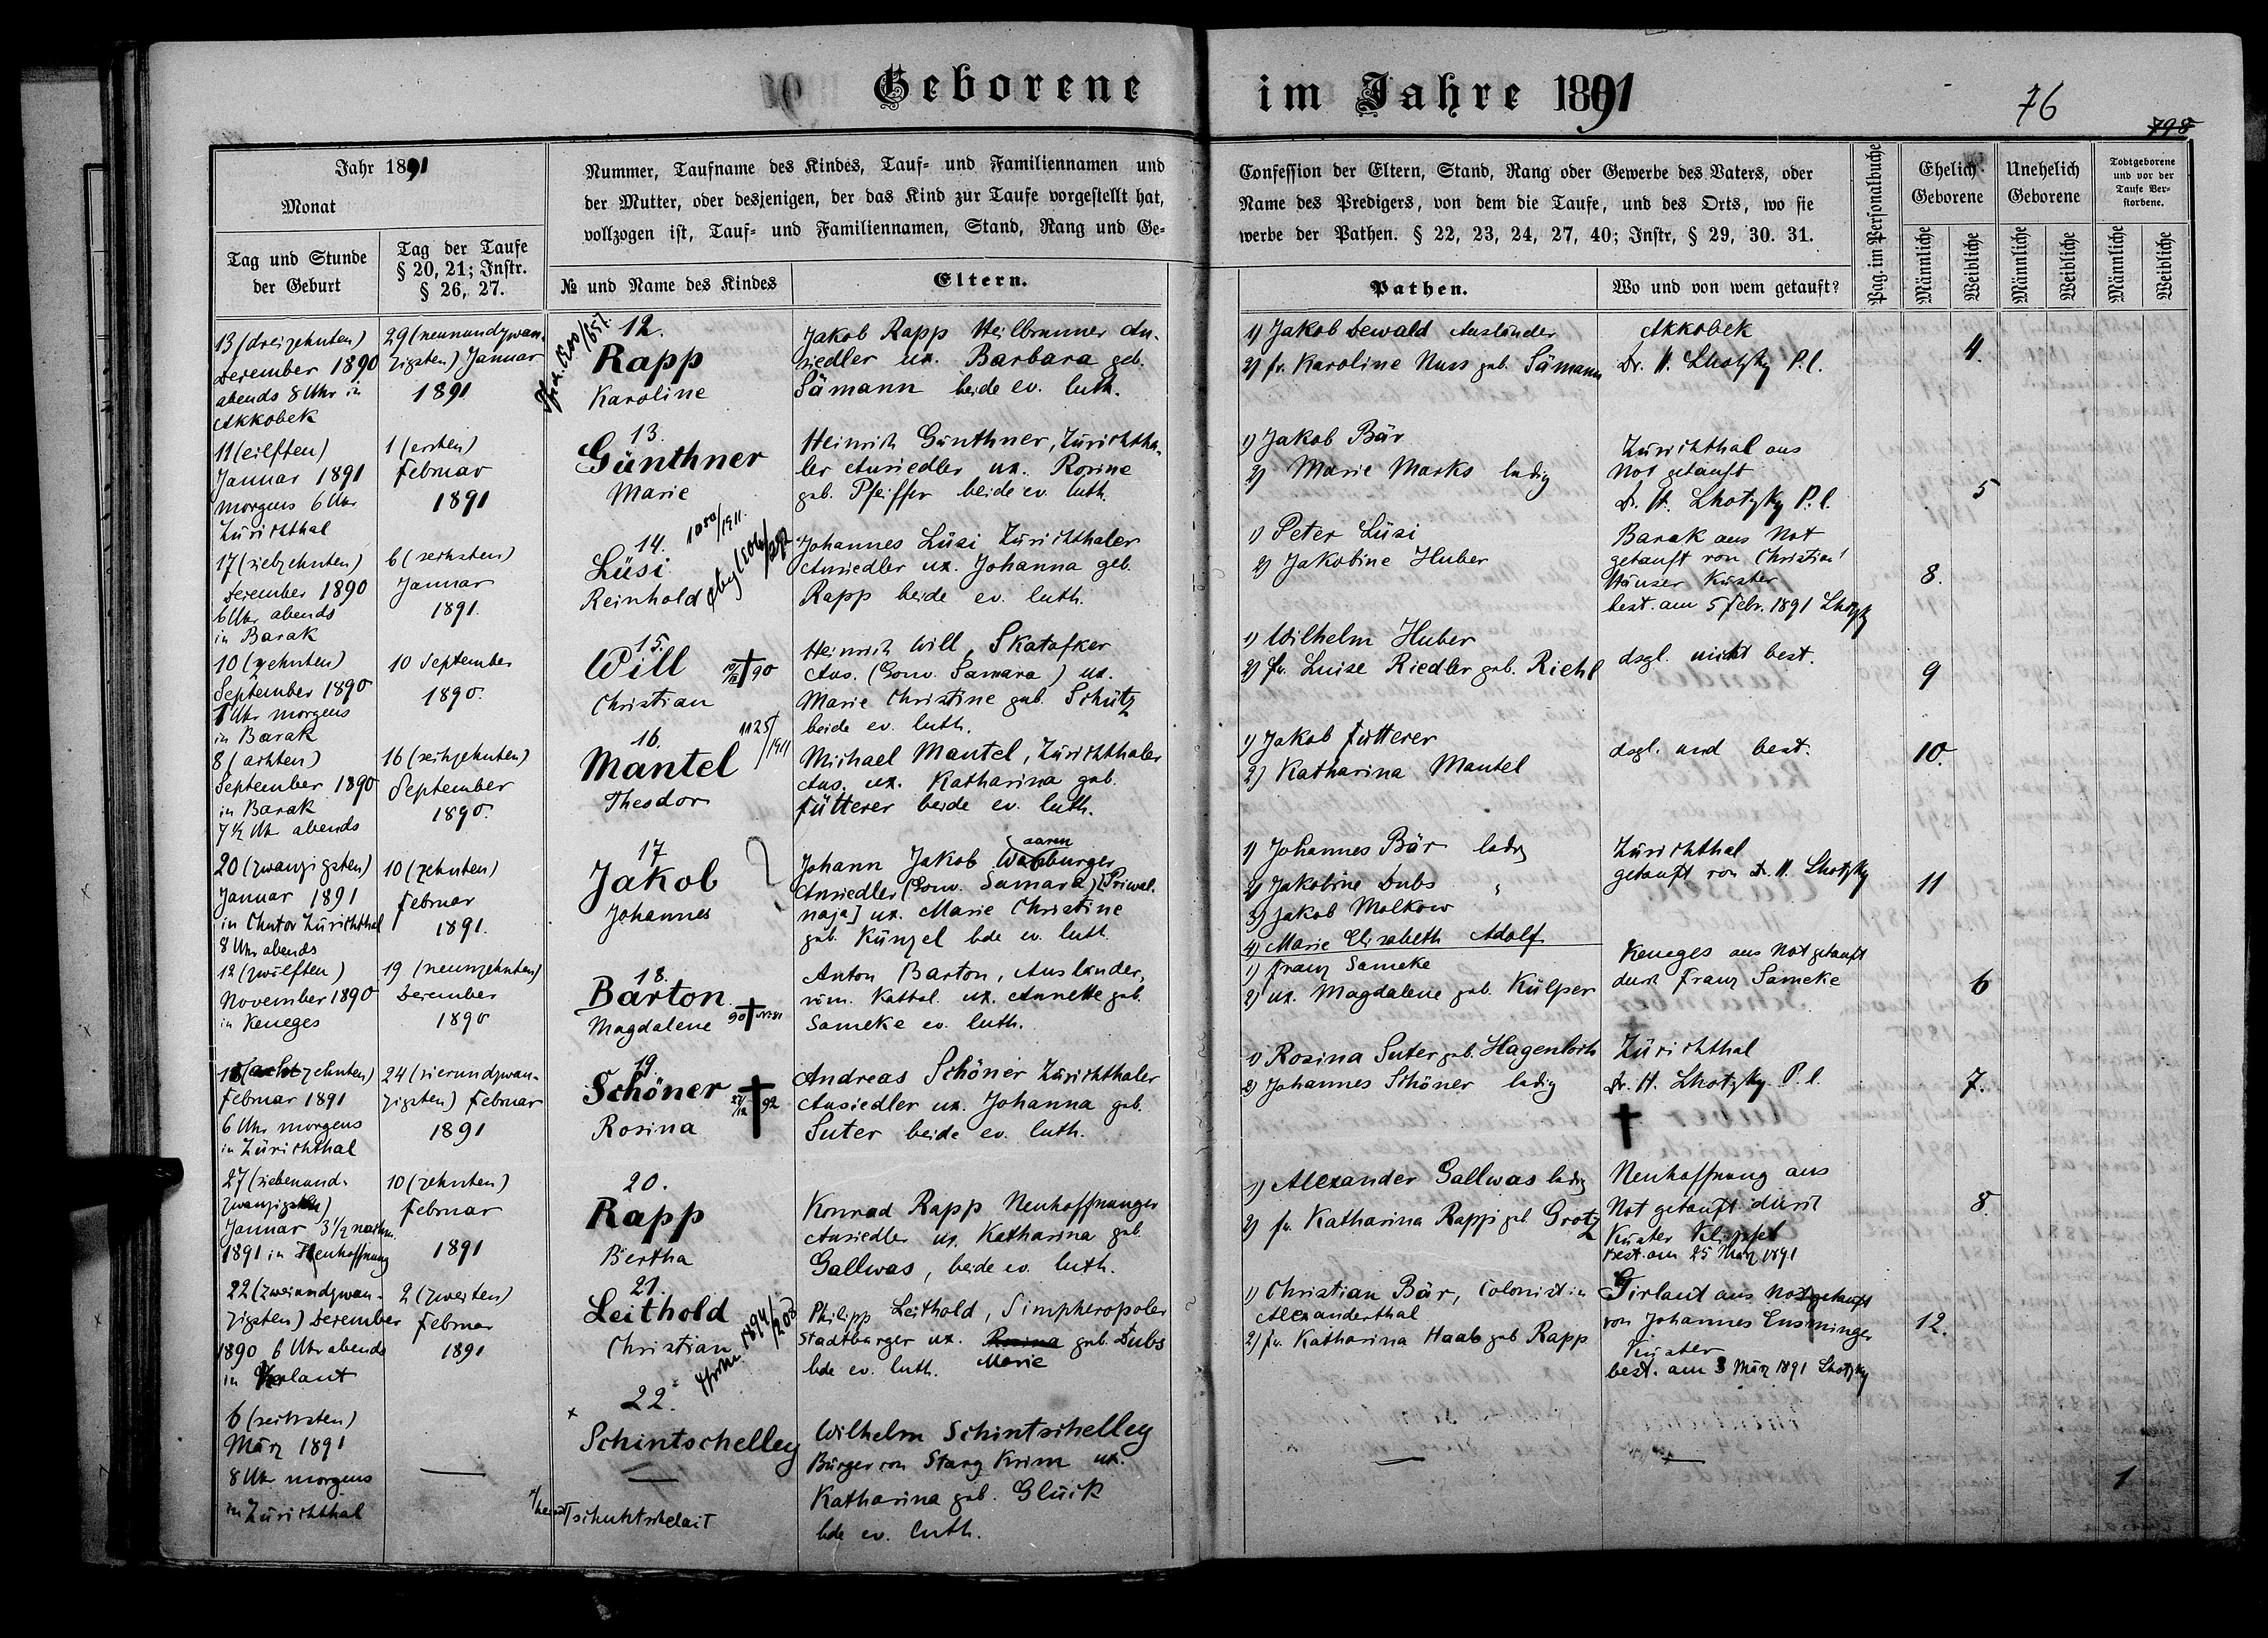 Geborene im Jahre 1891
76
798
Jahr 1891
Monat
Tag und Stunde
der Geburt
Tag der Taufe
§ 20, 21; Instr.
§ 26, 27.
Nummer, Taufname des Kindes, Tauf- und Familiennamen und
der Mutter, oder desjenigen, der das Kind zur Taufe vorgestellt hat,
vollzogen ist, Tauf- und Familiennamen, Stand, Rang und Ge-
№ und Name des Kindes
Eltern.
Confession der Eltern, Stand, Rang oder Gewerbe des Vaters, oder
Name des Predigers, von dem die Taufe, und des Orts, wo sie
werbe der Pathen. § 22, 23, 24, 27, 40; Instr, § 29, 30. 31.
Pathen.
Wo und von wem getauft?
Pag. im Personalbuche
Ehelich
Geborene
Unehelich
Geborene
Todtgeborene
und vor der
Taufe Ver-
storbene.
Männliche
Weibliche
Männliche
Weibliche
Männliche
Weibliche
13 (dreizehnten)
Dezember 1890
abends 8 Uhr in
Akkobek
29 (neunundzwan-
zigsten) Januar
1891
12.
Rapp
Karoline
Jakob Rapp Heilbrunner An-
siedler ux. Barbara geb.
Sämann beide ev. luth.
1) Jakob Dewald Ausländer
2) fr. Karoline Nuss geb. Sämann
Akkobek
Dr. H. Lhotzky P. l.
4.
11 (eilften)
Januar 1891
morgens 6 Uhr
Zürichthal
1 (ersten)
Februar
1891
13.
Günthner
Marie
Heinrich Günthner, Zürichtha-
ler Ansiedler ux. Rosine
geb. Pfeiffer beide ev. luth.
1) Jakob Bär
2) Marie Marks ledig
Zürichthal aus
Not getauft
Dr. H. Lhotzky P. l.
5
17 (siebzehnten)
Dezember 1890
6 Uhr abends
in Barak
6 (sechsten)
Januar
1891.
14.
1050/1911.
Lüsi
Reinhold
Johannes Lüsi Zürichthaler
Ansiedler ux. Johanna geb.
Rapp beide ev. luth.
1) Peter Lüsi
2) Jakobine Huber
Barak aus Not
getauft von Christian
Häuser Küster
best. am 5 Febr. 1891 Lhotzky
8.
10 (zehnten)
September 1890
1 Uhr morgens
in Barak
10 September
1890.
15.
Will † 90
Christian
Heinrich Will, Skatafker
Ans. (Gouv. Samara) ux.
Marie Christine geb. Schütz
beide ev. luth.
1) Wilhelm Huber
2) fr. Luise Riedler geb. Riehl
dsgl. nicht best.
9
8 (achten)
September 1890
in Barak
7 ½ Uhr abends
16 (sechzehnten)
September
1890.
16.
1125/1911
Mantel
Theodor
Michael Mantel, Zürichthaler
Ans. ux. Katharina geb.
Fütterer beide ev. luth.
1) Jakob Fütterer
2) Katharina Mantel
dsgl. und best.
10.
20 (zwanzigsten)
Januar 1891
in Chutor Zürichthal
8 Uhr abends
10 (zehnten)
Februar
1891.
17
Jakob
Johannes
Johann Jakob
Ansiedler (Gouv. Samara) [Priwal-
naja] ux. Marie Christine
geb. Künzel bde ev. luth.
1) Johannes Bär ledig
2) Jakobine Dubs "
3) Jakob Molkow
4) Marie Elisabeth Adolf
Zürichthal
getauft von Dr. H. Lhotzky
11
12 (zwölften)
November 1890
in Keneges
19 (neunzehnten)
Dezember
1890
18.
Barton
Magdalene 90 †
Anton Barton, Ausländer,
röm. Kathol. ux. Annette geb.
Sameke ev. luth.
1) Franz Sameke
2) ux. Magdalene geb. Külper
Keneges aus Not getauft
durch Franz Sameke
6
Februar 1891
6 Uhr morgens
in Zürichthal
24 (vierundzwan-
zigsten) Februar
1891
19.
Schöner 27/12 † 92
Rosina
Andreas Schöner Zürichthaler
Ansiedler ux. Johanna geb.
Suter beide ev. luth.
1) Rosina Suter geb. Hagenloch
2) Johannes Schöner ledig
Zürichthal
Dr. H. Lhotzky P. l.
†
7.
27 (siebenund-
zwanzigsten)
Januar 3 ½ nachm.
1891 in Neuhoffnung
10 (zehnten)
Februar
1891
20.
Rapp
Bertha
Konrad Rapp Neuhoffnunger
Ansiedler ux. Katharina geb.
Gallwas, beide ev. luth.
1) Alexander Gallwas ledig
2) fr. Katharina Rapp geb. Grotz
Neuhoffnung aus
Not getauft durch
Küster Klipfel
best. am 25 März 1891
8.
22 (zweiundzwan-
zigsten) Dezember
1890 6 Uhr abends
in
2 (zweiten)
Februar
1891
21.
Leithold
Christian
1894/203
Philipp Leithold, Simpheropoler
Stadtbürger ux. Rosina geb. Dubs
bde ev. luth. Marie
1) Christian Bär, Colonist in
Alexanderthal
2) fr. Katharina Haab geb Rapp
Girlaut aus Not getauft
von Johannes Ensminger
Küster
best. am 3 März 1891 Lhotzky
12.
6 (sechsten)
März 1891
8 Uhr morgens
in Zürichthal
—
22.
x
Schintschelley
—
Tschuhtschelait
Wilhelm Schintschelley
Bürger von Starij Krim ux.
Katharina geb. Glück
bde ev. luth.
—
—
1